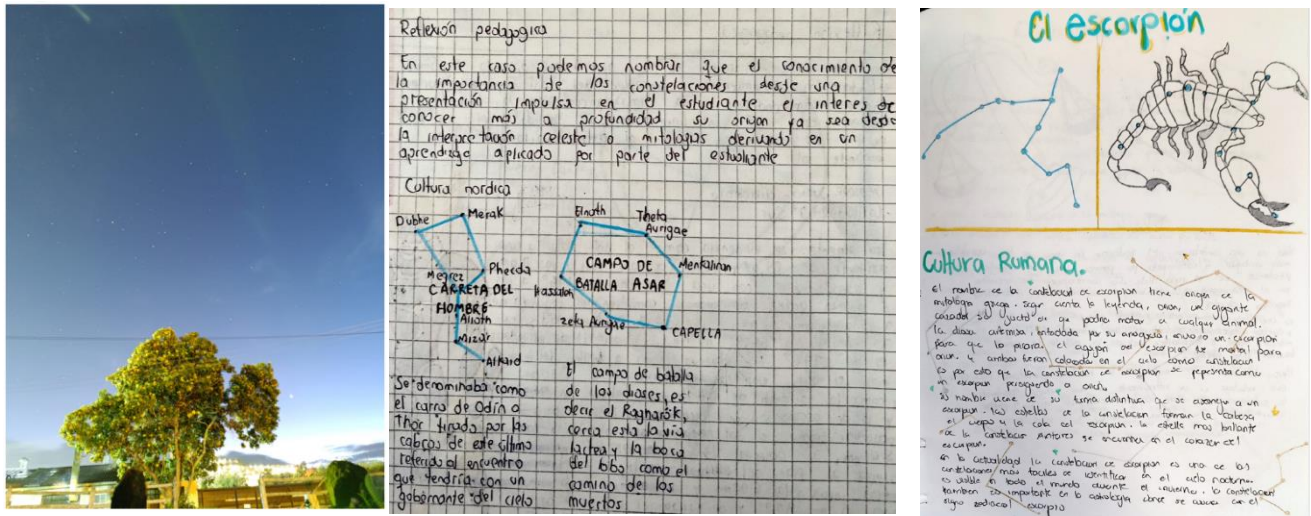 Reflexión pedagogica
En este caso podemos nombrar que el conocimiento de
la importancia de las constelaciones desde una
presentación impulsa en el estudiante el interes de
conocer más a profundidad su origen ya sea desde
la interpretación celeste o mitologias derivando en un
aprendizaje aplicado por parte del estudiante
Cultura nordica
Dubhe
Merak
Megrez
Phecda
CARRETA DEL
HOMBRE
Alioth
Mizar
Alkaid
Elnath
Theta
Aurigae
Menkalinan
CAMPO DE
BATALLA ASAR
Hassaleh
CAPELLA
Se denominaba como
el carro de Odín o
Thor tirado por las
cabras de este último
referido al encuentro
que tendría con un
gobernante del cielo
El campo de batalla
de los dioses, es
decir el Ragnarök,
cerca esta la vía
lactea y la boca
del lobo como el
camino de los
muertos
El escorpión
Cultura Rumana.
El nombre de la constelacion de escorpion tiene origen en la
mitologia griega. segun cuenta la leyenda, orion, un gigante
cazador que podria matar a cualquier animal.
la diosa artemisa, enfadada por su arrogancia, envio a un escorpion
para que lo picara. el aguijon del escorpion fue mortal para
orion, y ambos fueron en el cielo como constelacion
es por esto que la constelacion de escorpion se representa como
un escorpion persiguiendo a orion.
su nombre viene de su forma distintiva que se asemeja a un
escorpion. las estrellas de la constelacion forman la cabeza
el cuerpo y la cola del escorpion. la estrella mas brillante
de la constelacion Antares se encuentra en el corazon del
escorpion.
en la actualidad la constelacion de escorpion es una de las
constelaciones mas faciles de identificar en el cielo nocturno.
es visible en todo el mundo durante el la constelacion
tambien es importante en la astrologia donde se asocia con el
signo zodiacal escorpio